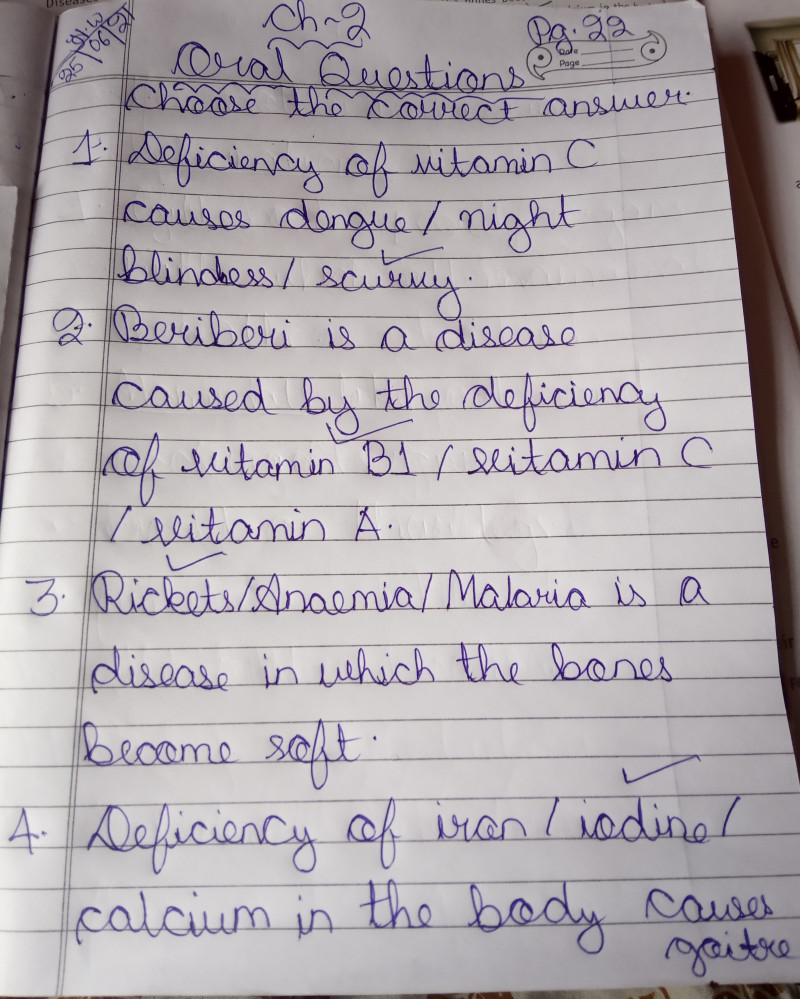 Ch-2
Pg. 22
25/06/21
Date
Page
Oral Questions
Choose the correct answer.
1. Deficiency of vitamin C
causes dengue/ night
blindness/ scurvy.
2. Beriberi is a disease
caused by the deficiency
of vitamin B1 / vitamin C
/ vitamin A.
3. Rickets/Anaemia/ Malaria is a
disease in which the bones
become soft.
4. Deficiency of iron / iodine/
calcium in the body causes
goitre